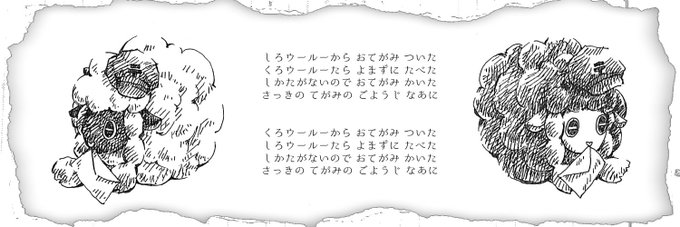 しろウールーから おてがみ ついた
くろウールーたら よまずに たべた
しかたがないので おてがみ かいた
さっきの てがみの ごようじ なあに
くろウールーから おてがみ ついた
しろウールーたら よまずに たべた
しかたがないので おてがみ かいた
さっきの てがみの ごようじ なあに